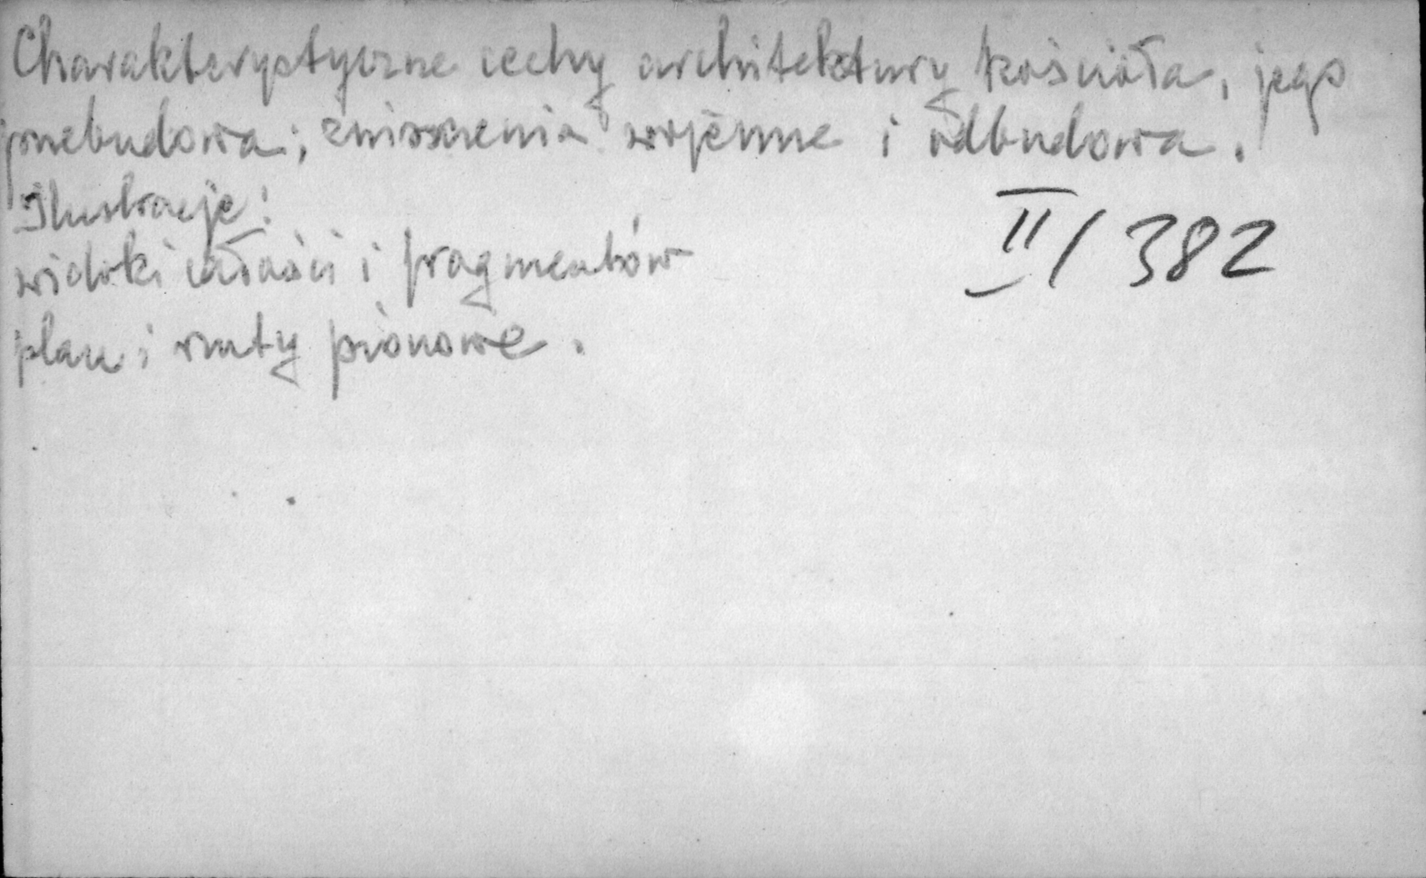 Charakterystyczne cechy architektury kościoła, jego
przebudowa; zniszczenia wojenne i odbudowa.
Ilustracje:
widoki całości i fragmentów
II/382
plan i rzuty pionowe.